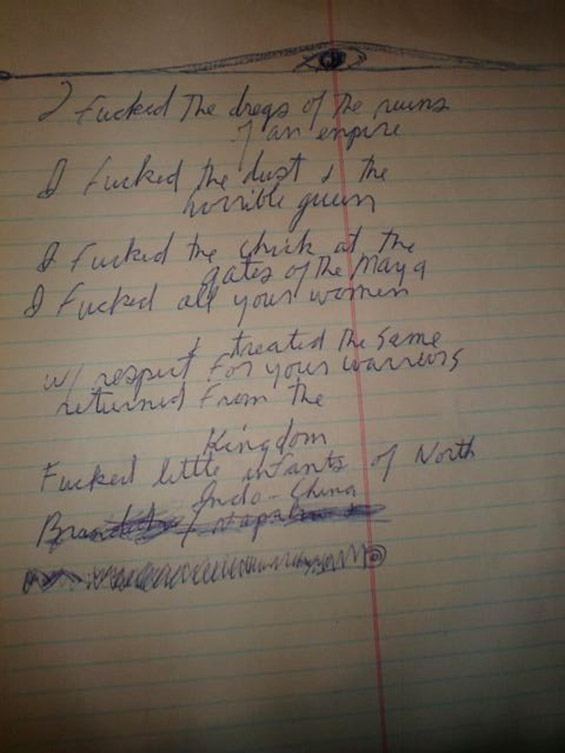 I Fucked The dregs of The ruins
of an empire
I Fucked the dust & the
horrible queen
I Fucked the chick at the
gates of the Maya
I Fucked all your women
& treated the same
w/ respect For your warriors
returned From the
Kingdom
Fucked little infants of North
Indo-China
/ napalm